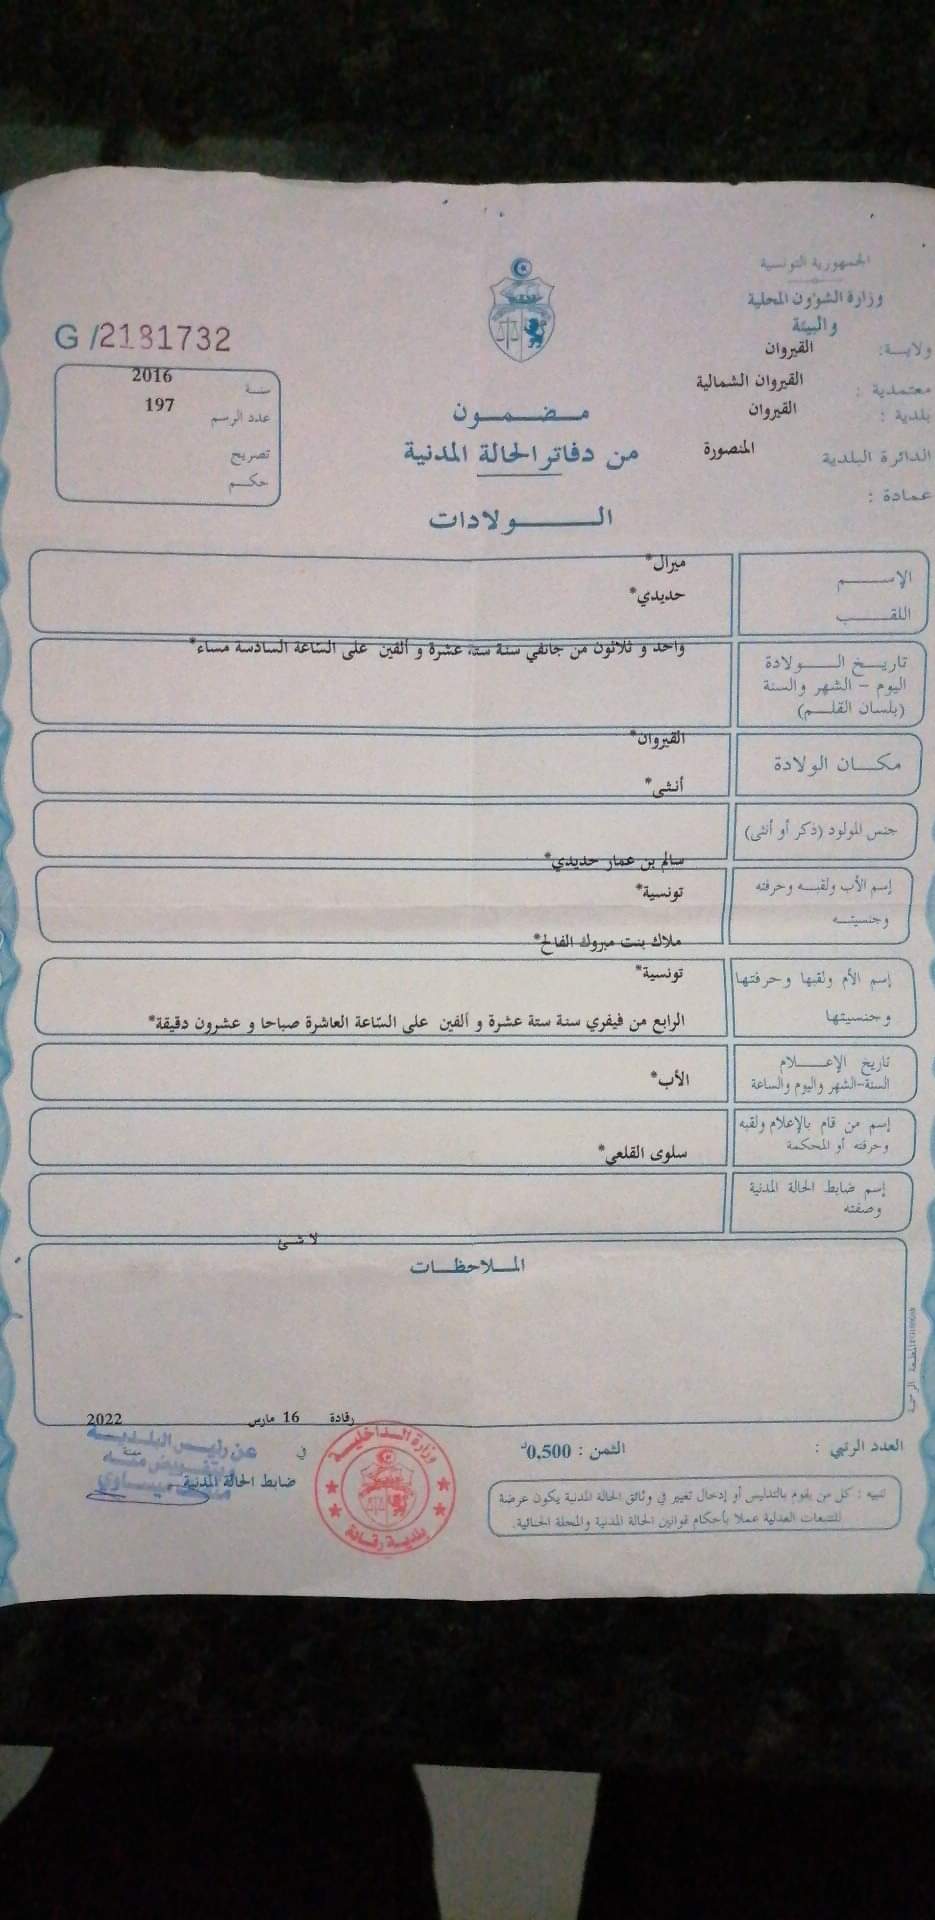 الجمهورية التونسية
وزارة الشؤون المحلية
والبيئة
ولاية: القيروان
معتمدية : القيروان الشمالية
بلدية : القيروان
الدائرة البلدية المنصورة
عمادة :
G /2181732
سنة 2016
عدد الرسم 197
تصريح
حكم
مضمون
من دفاتر الحالة المدنية
الولادات
الإسم ميرال*
اللقب حديدي*
تاريخ الولادة
اليوم - الشهر والسنة
(بلسان القلم)
واحد و ثلاثون من جانفي سنة ستة عشرة و ألفين على السّاعة السادسة مساء*
مكان الولادة القيروان*
جنس المولود (ذكر أو أنثى) أنثى*
إسم الأب ولقبه وحرفته
وجنسيته
سالم بن عمار حديدي*
تونسية*
إسم الأم ولقبها وحرفتها
وجنسيتها
ملاك بنت مبروك الفالح*
تونسية*
تاريخ الإعلام
السنة-الشهر واليوم والساعة
الرابع من فيفري سنة ستة عشرة و ألفين على السّاعة العاشرة صباحا و عشرون دقيقة*
إسم من قام بالإعلام ولقبه
وحرفته أو المحكمة
الأب*
إسم ضابط الحالة المدنية
وصفته
سلوى القلعي*
لا شئ
الملاحظات
رقادة 16 مارس 2022
العدد الرتبي :
الثمن : 0,500د
في
ضابط الحالة المدنية
عن رئيس البلدية
وبتفويض منه
وزارة الداخلية
بلدية رقادة
تنبيه : كل من يقوم بالتدليس أو إدخال تغيير في وثائق الحالة المدنية يكون عرضة
للتتبعات العدلية عملا بأحكام قوانين الحالة المدنية والمجلة الجنائية.
المطبعة الرسمية